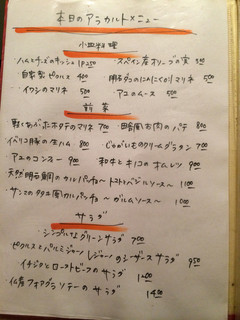 本日のアラカルトメニュー
小皿料理
・ハムとチーズのキッシュ 1P250 ・スペイン産オリーブの実 500
・自家製ピクルス 400 ・明石ダコのにんにくマリネ 500
・イワシのマリネ 500 ・アユのムース 500
前菜
・ホタテのマリネ 700 ・田舎風お肉のパテ 800
・イベリコ豚の生ハム 800 ・じゃがいものクリームグラタン 700
・アユのコンフィー 900 ・和牛とキノコのオムレツ 900
・天然明石鯛のカルパッチョ 〜トマトとバジルソース〜 1100
・サンマのタタキ風カルパッチョ 〜ガルムソース〜 1000
サラダ
・シンプルなグリーンサラダ 700
・ピクルスとパルミジャーノレジャーノのシーザースサラダ 950
・イチジクとローストビーフのサラダ 1200
・仏産フォアグラソテーのサラダ 1450